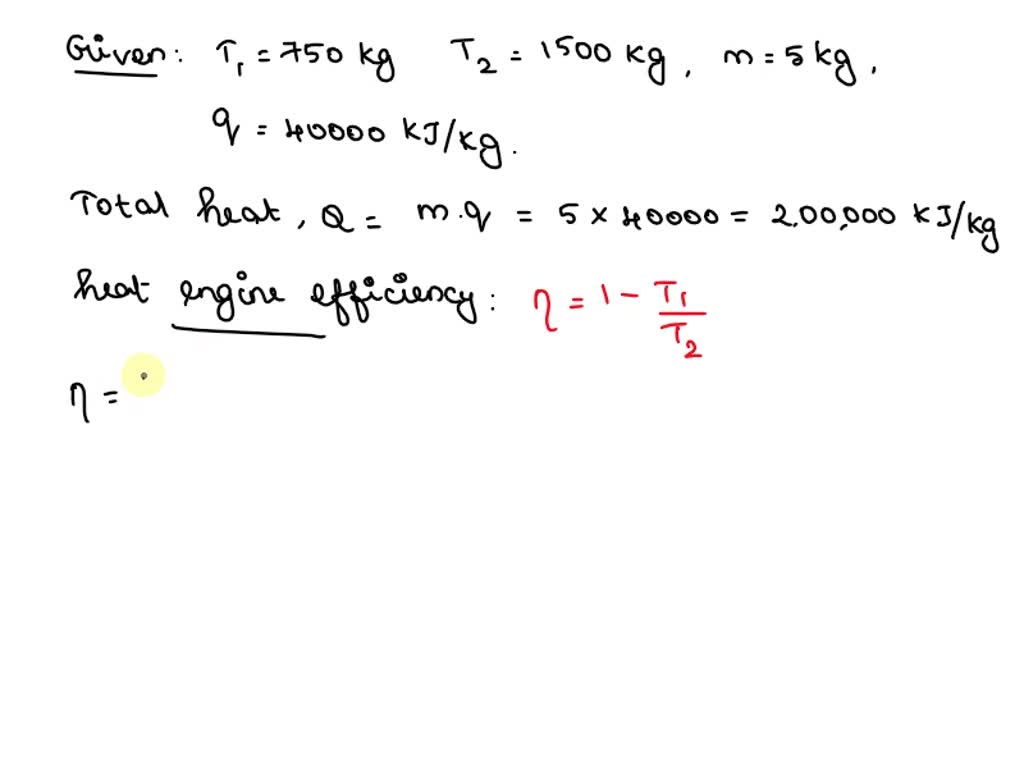 Given: T₁ = 750 kg T₂ = 1500 kg, m = 5 kg,
q = 40000 KJ/kg.
Total heat, Q = m.q = 5 × 40000 = 2,00,000 KJ/kg
heat engine efficiency: η = 1 - T₁/T₂
η =